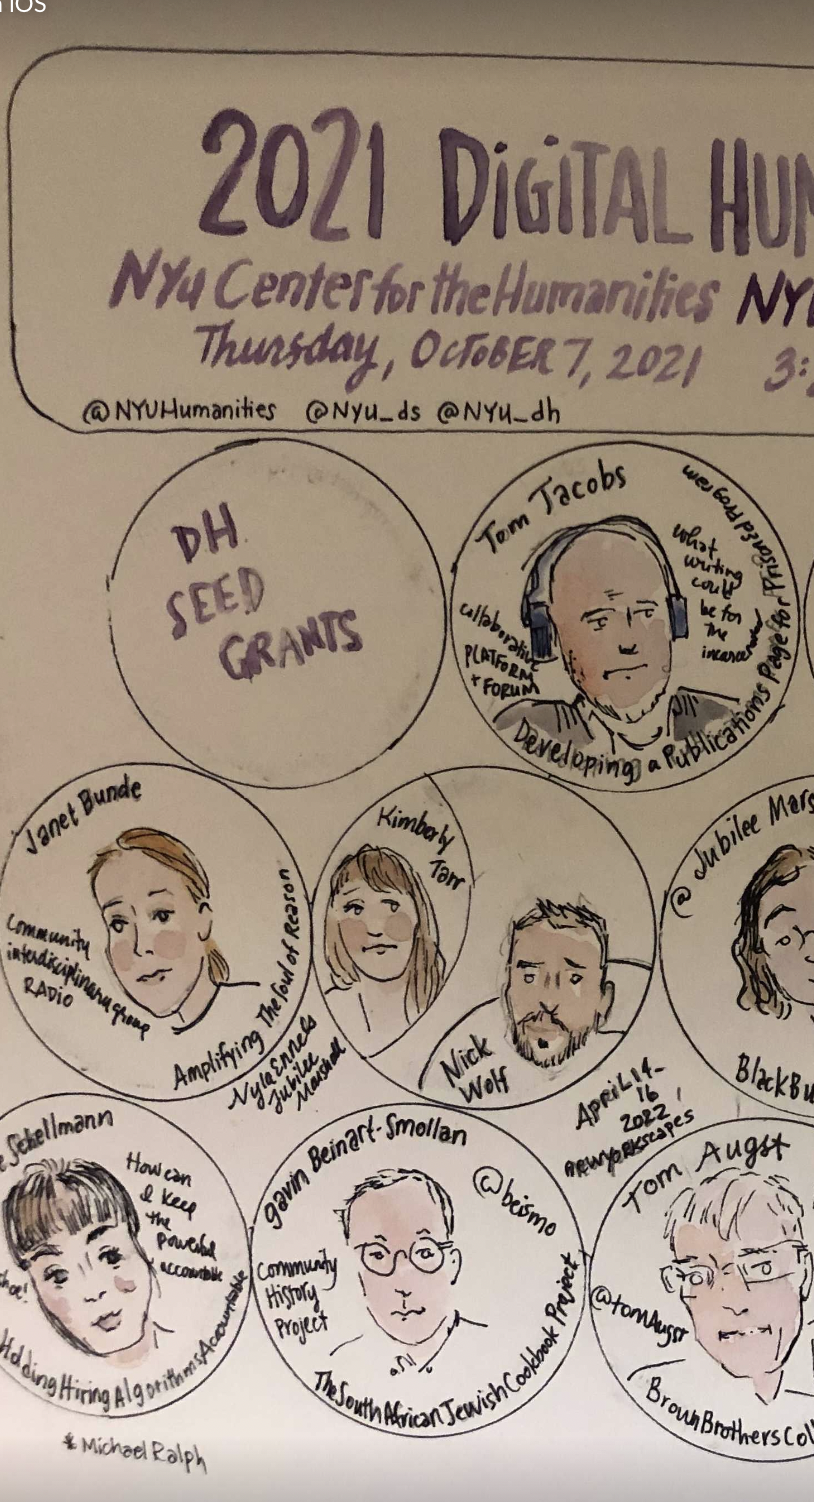 iOS
2021 DiGiTAL HUM
NYU Center for the Humanities NYU
Thursday, OCTOBER 7, 2021 3:
@NYUHumanities @Nyu_ds @NYU_dh
DH
SEED
GRANTS
Tom Jacobs
what
writing
could
be for
the
collaborative
PLATFORM
+ FORUM
Developing a Publications Page for Prison Ed Program
Janet Bunde
Community
interdisciplinary group
RADIO
Amplifying The Soul of Reason
Nyla Ennels
Jubilee
Marshall
Kimberly
Tarr
Nick
Wolf
@ Jubilee Mars
Black Bu
APRiL 14-
16
2022
NEWYORKscapes
e Schellmann
How can
I keep
the
powerful
accountable
shoe!
Holding Hiring Algorithms Accountable
* Michael Ralph
gavin Beinart-Smollan
@beismo
Community
History
Project
The South African Jewish Cookbook Project
Tom Augst
@tomAugst
Brown Brothers Col